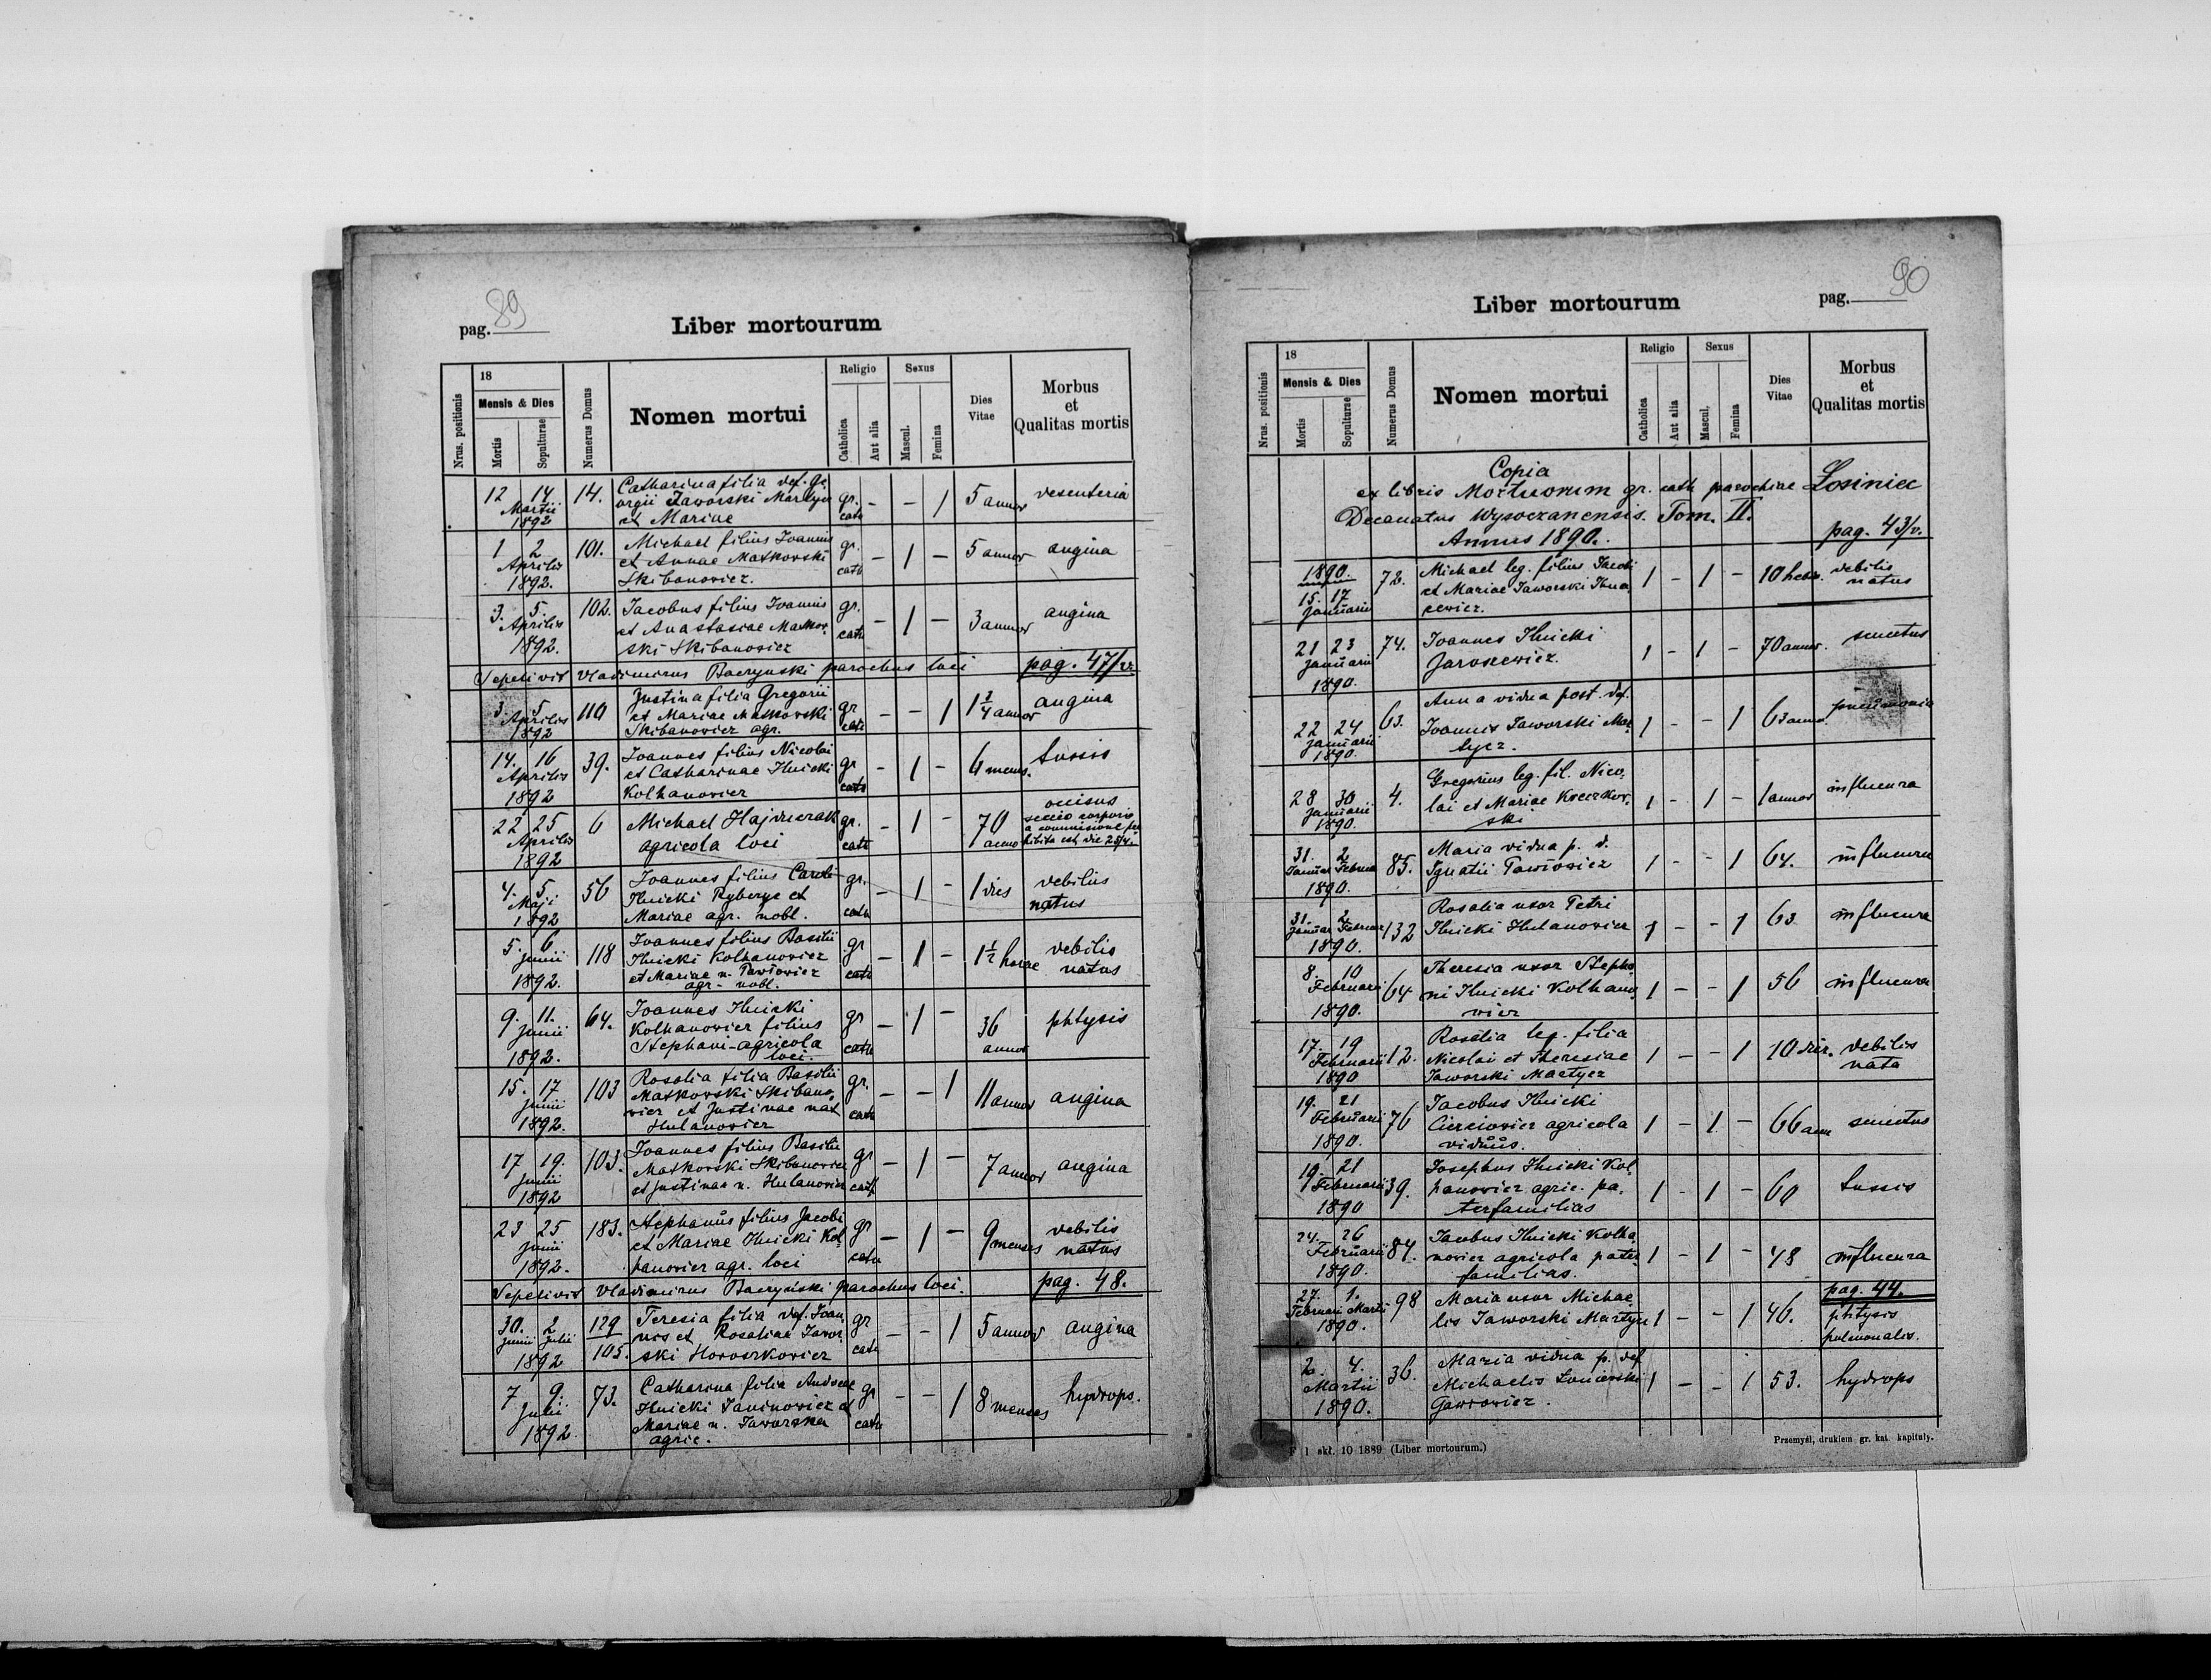 pag. 89
Liber mortourum
Nrus. positionis
18
Mensis & Dies
Mortis
Sepulturae
Numerus Domus
Nomen mortui
Religio
Catholica
Aut alia
Sexus
Mascul.
Femina
Dies
Vitae
Morbus
et
Qualitas mortis
12 14 Martii 1892 14. Catharina filia def. Ge-
orgii Jaworski Martycz
et Mariae gr. cath - - 1 5 annor desenteria
1 2 Aprilis 1892. 101. Michael filius Joannis
et Annae Matkowski
Skibanowicz. gr. cath - 1 - 5 annor angina
3. 5. Aprilis 1892. 102. Jacobus filius Joannis
et Anastasiae Matkow-
ski Skibanowicz gr. cath - 1 - 3 annor angina
Sepelivit Vladimirus Baczynski parochus loci pag. 47/
3. 5 Aprilis 1892 110 Justina filia Gregorii
et Mariae Matkowski
Skibanowicz agr. gr cath - - 1 1 1/4 annor angina
14. 16 Aprilis 1892 39. Joannes filius Nicolai
et Catharinae Ilnicki
Kolhanowicz gr cath - 1 - 6 mens. tussis
22 25 Aprilis 1892 6 Michael Hajduczak
agricola loci gr. cath - 1 - 70 anno occisus
seccio corporis
a commissione
hibita est die 25/4.
4. 5. Maji 1892 56 Joannes filius Caroli
Ilnicki Ryberye et
Mariae agr. nobl. gr. cath - 1 - 1 dies debilis
natus
5. 6 Junii 1892. 118 Joannes filius Basilii
Ilnicki Kolhanowicz
et Mariae n.
agr. nobl. gr cath - 1 - 1 1/2 horae debilis
natus
9. 11. Junii 1892. 64. Joannes Ilnicki
Kolhanowicz filius
Stephani - agricola
loci. gr cath - 1 - 36 annor phtysis
15. 17 Junii 1892. 103 Rosalia filia Basilii
Matkowski Skibano-
wicz et Justinae nat
Hulanowicz gr. cath - - 1 11 annor angina
17 19. Junii 1892 103. Joannes filius Basilii
Matkowski Skibanowicz
et Justinae n. Hulanowicz gr cath - 1 - 7 annor angina
23 25 Junii 1892. 183. Stephanus filius Jacobi
et Mariae Ilnicki Kol-
hanowicz agr. loci gr cath - 1 - 9 menses debilis
natus
Sepelivit Vladimirus Baczyński parochus loci. pag. 48.
30. 2 Junii Julii 1892 129 105. Teresia filia def. Joan-
nis et Rosaliae Jawor-
ski Horoszkowicz gr cath - - 1 5 annor angina
7 9. Julii 1892. 73. Catharina filia Andreae
Ilnicki Janinowicz et
Mariae n. Jaworska
agric. gr cath - - 1 8 menses hydrops.
Liber mortourum
pag. 90
Nrus. positionis
18
Mensis & Dies
Mortis
Sopulturae
Numerus Domus
Nomen mortui
Religio
Catholica
Aut alia
Sexus
Mascul.
Femina
Dies
Vitae
Morbus
et
Qualitas mortis
Copia
ex libris Mortuorum gr. cath parochiae Łosiniec
Decanatus Wysoczanensis. Tom. II.
Annus 1890. pag. 43/v.
1890. 15. 17 Januarii 72. Michael leg. filius Jacobi
et Mariae Jaworski
cewicz. 1 - 1 - 10 hebd. debilis
natus
21 23 Januarii 1890. 74. Joannes Ilnicki
Jaroszewicz. 1 - 1 - 70 annor. senectus
22 24 Januarii 1890. 63. Anna vidua post. def.
Joannis Jaworski Mar-
tycz. 1 - - 1 63 anno. pneumonia
28 30 Januarii 1890. 4. Gregorius leg. fil. Nico-
lai et Mariae Kreczkow-
ski 1 - 1 - 1 annor influenza
31. 2 1890. 85. Maria vidua p. d.
Ignatii 1 - - 1 64. influenza
31. 2 1890. 132 Rosalia uxor Petri
Ilnicki Hulanowicz 1 - - 1 63 influenza
8. 10 Februarii 1890. 64 Theresia uxor Stepha-
ni Ilnicki Kolhano-
wicz 1 - - 1 56 influenza
17. 19 Februarii 1890 12. Rosalia leg. filia
Nicolai et Theresiae
Jaworski Martycz 1 - - 1 10 dier. debilis
nata
19. 21 Februarii 1890. 76 Jacobus Ilnicki
agricola
viduus. 1 - 1 - 66 ann senectus
19. 21 Februarii 1890 39. Josephus Ilnicki Kol-
hanowicz agric. pa-
terfamilias 1 - 1 - 60 tussis
24. 26 Februarii 1890. 84. Jacobus Ilnicki Kolha-
nowicz agricola pater-
familias. 1 - 1 - 48 influenza
pag. 44.
27. 1. Februari Martii 1890. 98 Maria uxor Michae-
lis Jaworski Martycz 1 - - 1 46. phtysis
pulmonalis.
2. 4. Martii 1890. 36. Maria vidua p. def
Michaelis
1 - - 1 53. hydrops
F 1 skł. 10 1889 (Liber mortourum.)
Przemyśl, drukiem gr. kat. kapituły.